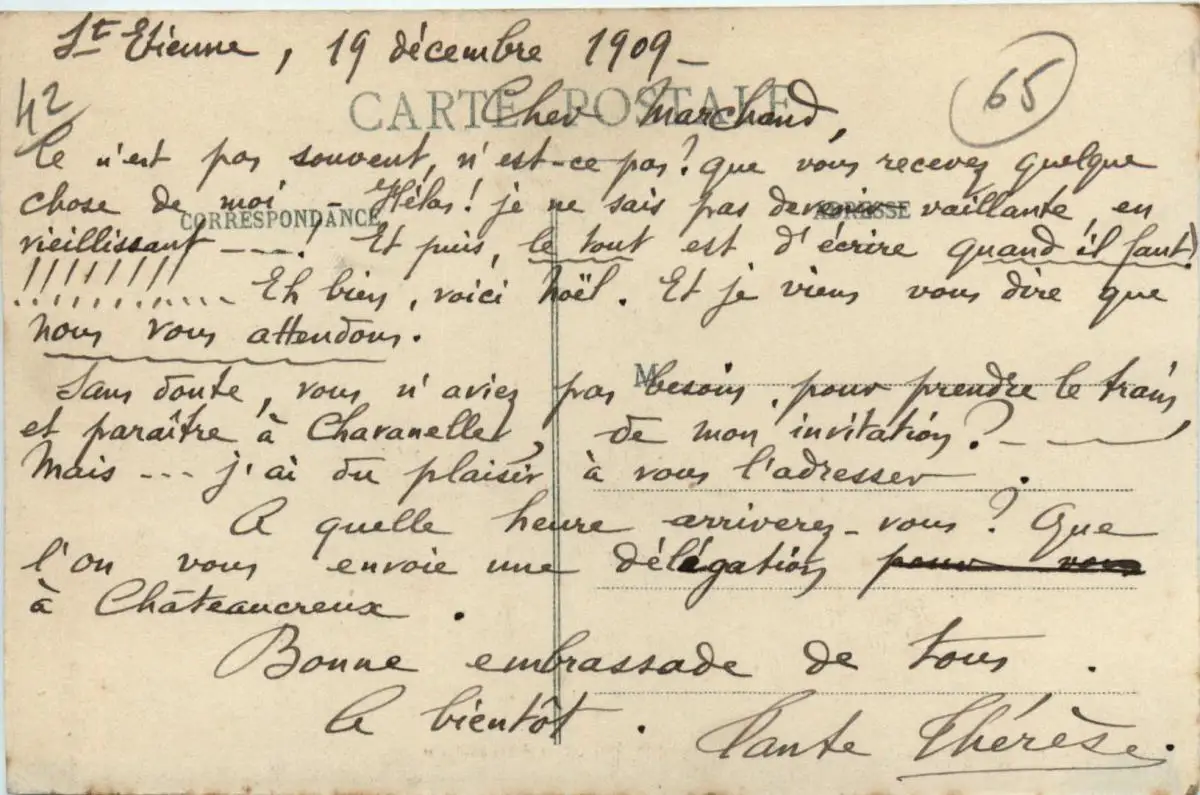 St Etienne, 19 décembre 1909 –
42
65
CARTE POSTALE
Cher Marchand,
Ce n'est pas souvent, n'est-ce pas? que vous recevez quelque
chose de moi – Hélas! je ne sais pas devenir vaillante, en
CORRESPONDANCE
ADRESSE
vieillissant ---! Et puis, le tout est d'écrire quand il faut!
!!!!!!!!! Eh bien, voici Noël. Et je viens vous dire que
nous vous attendons.
M
Sans doute, vous n'aviez pas besoin, pour prendre le train,
et paraître à Chavanelle, de mon invitation? –
Mais --- j'ai du plaisir à vous l'adresser.
A quelle heure arriverez-vous? Que
l'on vous envoie une délégation pour vous
à Châteaucreux.
Bonne embrassade de tous.
A bientôt.
Tante Thérèse.